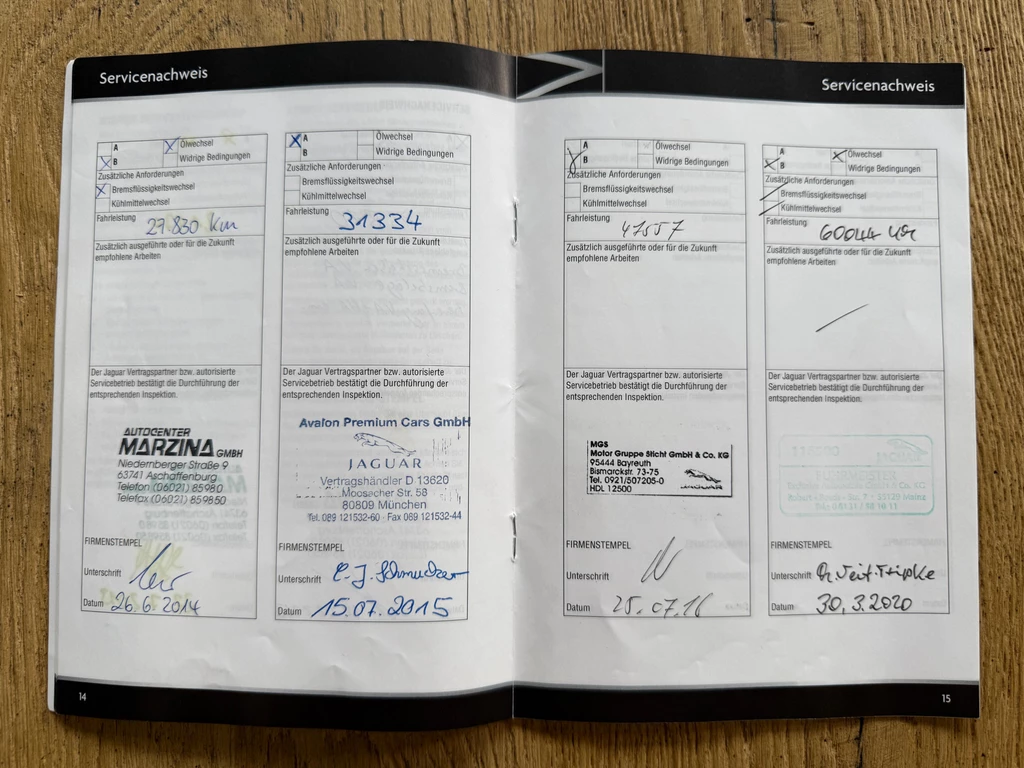 Servicenachweis
A
B
Ölwechsel
Widrige Bedingungen
Zusätzliche Anforderungen
Bremsflüssigkeitswechsel
Kühlmittelwechsel
Fahrleistung
27.830 Km
Zusätzlich ausgeführte oder für die Zukunft
empfohlene Arbeiten
Der Jaguar Vertragspartner bzw. autorisierte
Servicebetrieb bestätigt die Durchführung der
entsprechenden Inspektion.
AUTOCENTER
MARZINA GMBH
Niedernberger Straße 9
63741 Aschaffenburg
Telefon (06021) 85980
Telefax (06021) 859850
FIRMENSTEMPEL
Unterschrift
Datum 26.6.2014
A
B
Ölwechsel
Widrige Bedingungen
Zusätzliche Anforderungen
Bremsflüssigkeitswechsel
Kühlmittelwechsel
Fahrleistung
31334
Zusätzlich ausgeführte oder für die Zukunft
empfohlene Arbeiten
Der Jaguar Vertragspartner bzw. autorisierte
Servicebetrieb bestätigt die Durchführung der
entsprechenden Inspektion.
Avalon Premium Cars GmbH
JAGUAR
Vertragshändler D 13620
Moosacher Str. 58
80809 München
Tel. 089 121532-60 · Fax 089 121532-44
FIRMENSTEMPEL
Unterschrift
Datum 15.07.2015
14
Servicenachweis
A
B
Ölwechsel
Widrige Bedingungen
Zusätzliche Anforderungen
Bremsflüssigkeitswechsel
Kühlmittelwechsel
Fahrleistung
Zusätzlich ausgeführte oder für die Zukunft
empfohlene Arbeiten
Der Jaguar Vertragspartner bzw. autorisierte
Servicebetrieb bestätigt die Durchführung der
entsprechenden Inspektion.
MGS
Motor Gruppe Sticht GmbH & Co. KG
95444 Bayreuth
Bismarckstr. 73-75
Tel. 0921/507205-0
HDL 12500
JAGUAR
FIRMENSTEMPEL
Unterschrift
Datum 25.07.16
A
B
Ölwechsel
Widrige Bedingungen
Zusätzliche Anforderungen
Bremsflüssigkeitswechsel
Kühlmittelwechsel
Fahrleistung
60044 km
Zusätzlich ausgeführte oder für die Zukunft
empfohlene Arbeiten
Der Jaguar Vertragspartner bzw. autorisierte
Servicebetrieb bestätigt die Durchführung der
entsprechenden Inspektion.
JAGUAR
FIRMENSTEMPEL
Unterschrift
Datum 30.3.2020
15